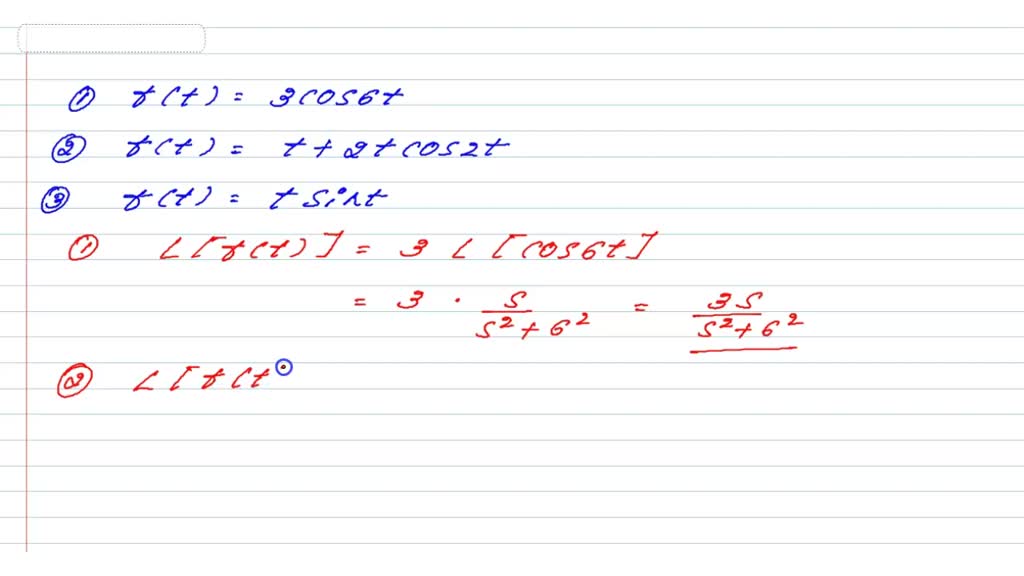 ① f(t) = 3cos6t
② f(t) = t + 2tcos2t
③ f(t) = t sint
① L[f(t)] = 3 L [cos6t]
= 3 · s/s²+6² = 3s/s²+6²
② L[f(t